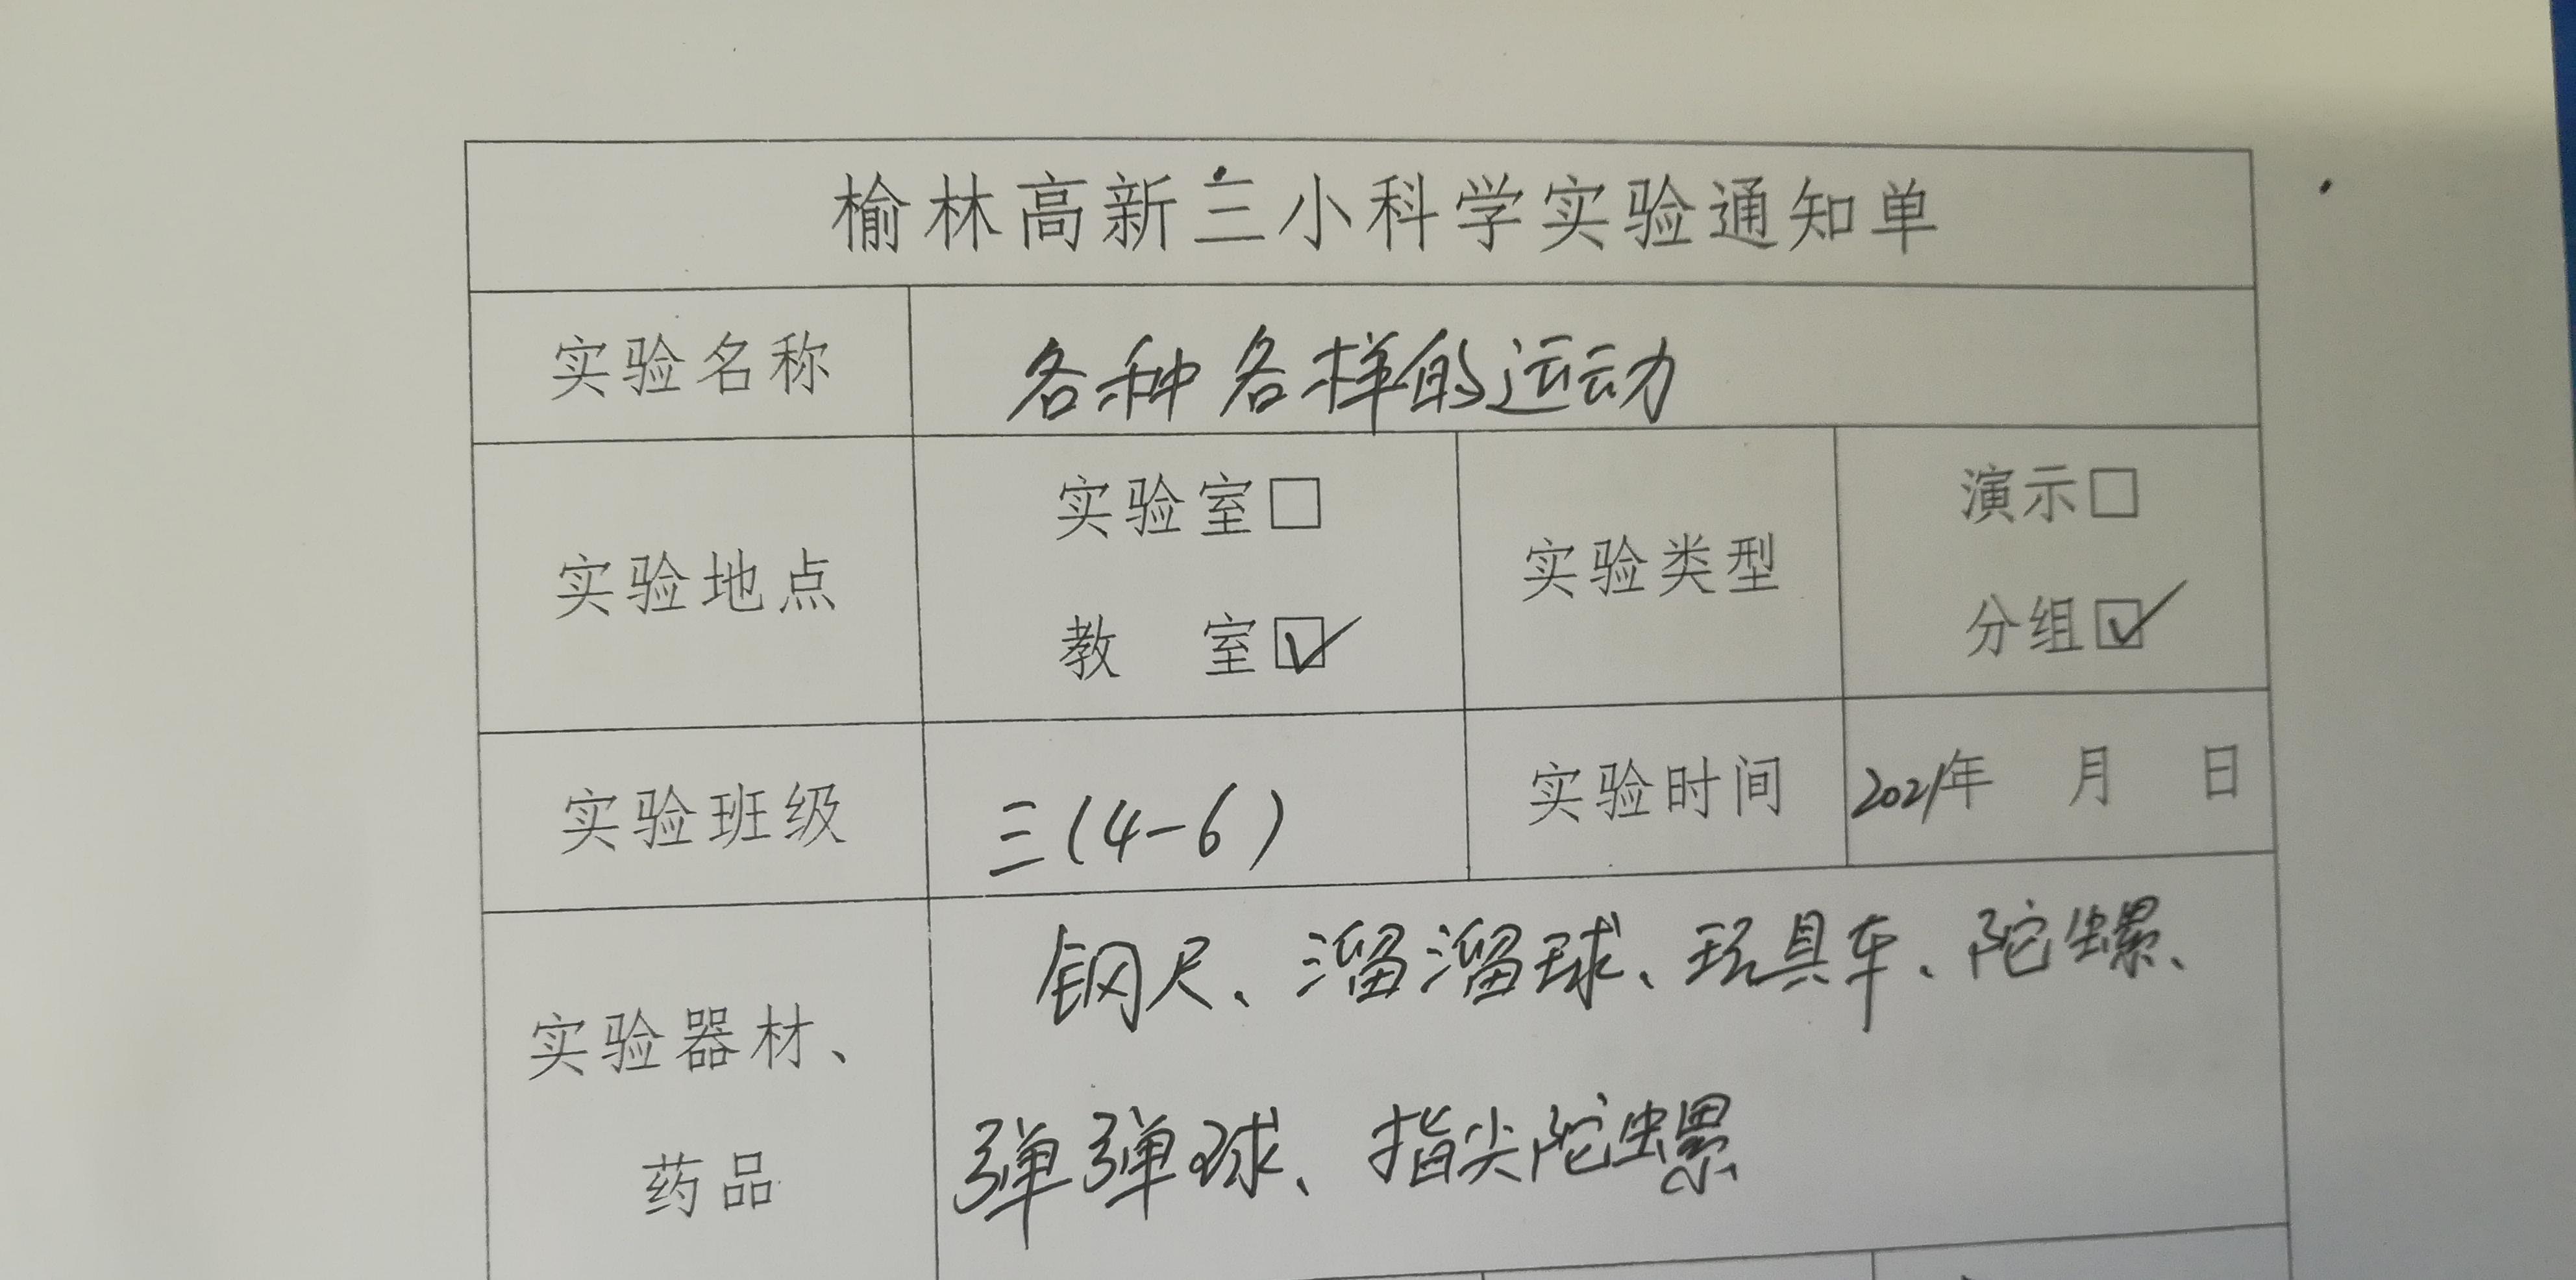 榆林高新三小科学实验通知单
实验名称 各种各样的运动
实验地点 实验室□ 实验类型 演示□
教 室☑ 分组☑
实验班级 三(4-6) 实验时间 2021年 月 日
实验器材、 钢尺、溜溜球、玩具车、陀螺、
药品 弹弹球、指尖陀螺